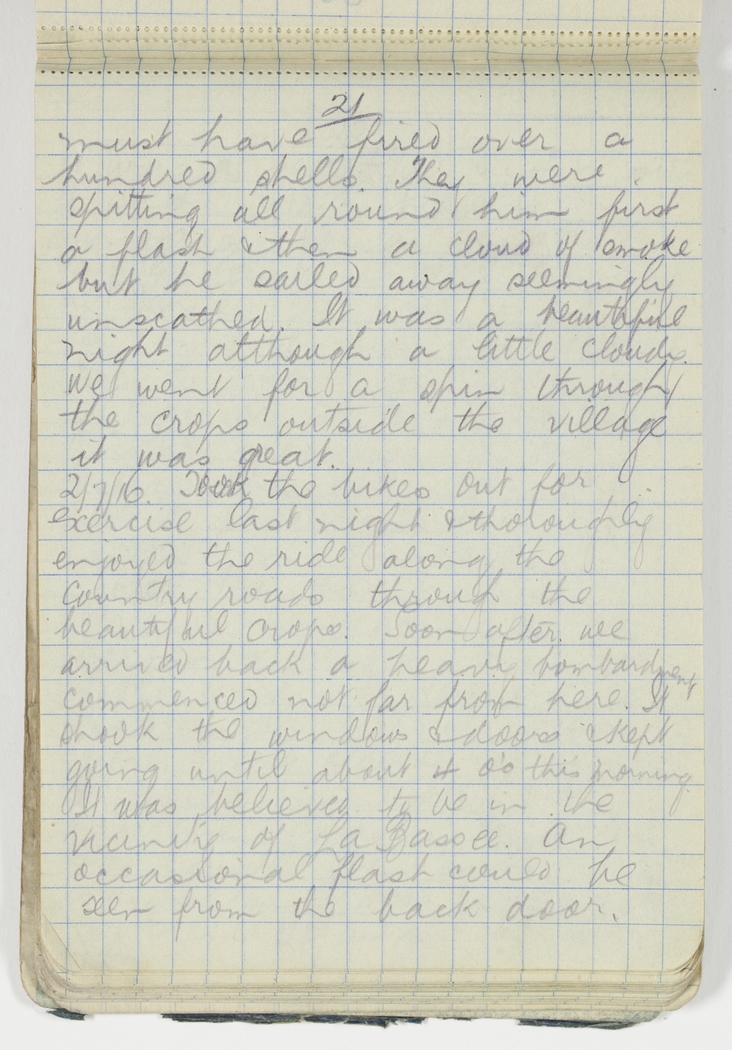 21
must have fired over a
hundred shells. They were
spitting all round him first
a flash & then a cloud of smoke
but he sailed away seemingly
unscathed. It was a beautiful
night although a little cloudy.
we went for a spin through
the crops outside the village
it was great.
2/7/16. Took the bikes out for
exercise last night & thoroughly
enjoyed the ride along the
country roads through the
beautiful crops. Soon after we
arrived back a heavy bombardment
commenced not far from here. It
shook the windows & doors & kept
going until about 4 o'c this morning.
It was believed to be in the
vicinity of La Bassee. An
occasional flash could be
seen from the back door.